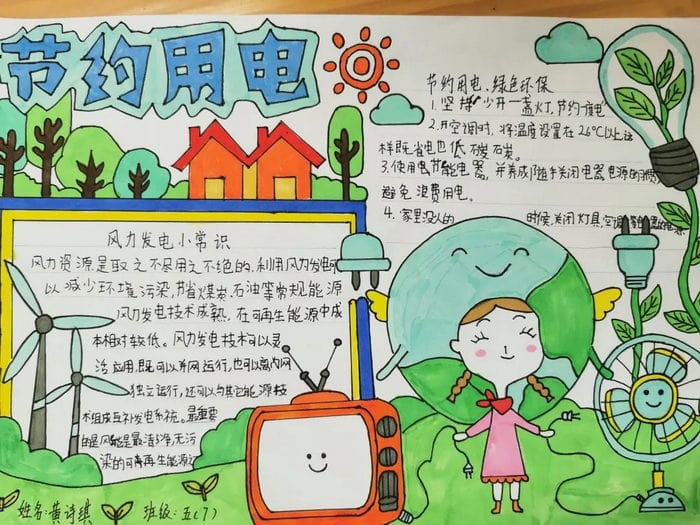 节约用电
节约用电、绿色环保
1. 坚持少开一盏灯，节约一度电
2. 开空调时，将温度设置在26℃以上这
样既省电也低碳
3. 使用节能电器，并养成随手关闭电器电源的习惯
避免浪费用电。
4. 家里没人的 时候，关闭灯具，空调等
风力发电小常识
风力资源是取之不尽用之不绝的，利用风力发电可
以减少环境污染，节省煤炭、石油等常规能源
风力发电技术成熟，在可再生能源中成
本相对较低。风力发电技术可以灵
活应用，既可以并网运行，也可以离网
独立运行，还可以与其它能源技
术组成互补发电系统。最重要
的是风能是最洁净，无污
染的可再生能源之
姓名：黄诗琪 班级：五(7)